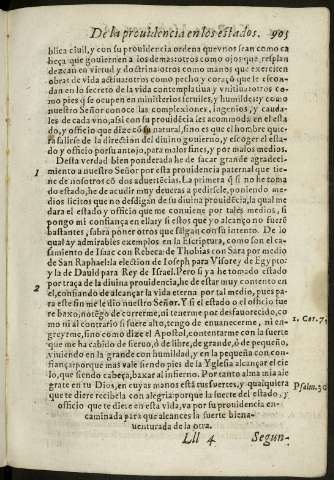 De la prouidencia en los estados. 903
blica ciuil, y con su prouidencia ordena que vnos sean como ca
beça que gouiernen a los demas: otros como ojos que resplan
dezcan en virtud y doctrina: otros como manos que exerciten
obras de vida actiua: otros como pecho y coraçō que le escon-
dan en lo secreto de la vida contemplatiua y vnitiua: otros co
mo pies q̃ se ocupen en ministerios seruiles, y humildes: y como
nuestro Señor conoce las complexiones, ingenios, y cauda-
les de cada vno, assi con su prouidēcia les acomoda en el esta
do, y officio que dize cō su natural, sino es que el hombre quie-
ra salirse de la direction del diuino gouierno, y escoger el esta-
do y officio por su antojo, para malos fines, y por malos medios.
Desta verdad bien ponderada he de sacar grande agradeci-
1 miento a nuestro Señor por esta prouidencia paternal que tie-
ne de nosotros cō dos aduertēcias. La primera q̃ si no he toma
do estado, he de acudir muy deueras a pedirsele, poniendo me-
dios licitos que no desdigan de su diuina prouidēcia, la qual me
dara el estado y officio que me conuiene por tales medios, si
pongo mi confiança en ella: y si estos que yo alcanço no fuerē
bastantes, sabra poner otros que salgan con su intento. De lo
qual ay admirables exemplos en la Escriptura, como son el ca-
samiento de Isaac con Rebeca: de Thobias con Sara por medio
de San Raphael: la election de Ioseph para Visorey de Egypto:
y la de Dauid para Rey de Israel. Pero si ya he tomado estado
por traça de la diuina prouidencia, he de estar muy contento en
2 el, confiando de alcançar la vida eterna por tal medio, pues pa-
ra este fin me le dio nuestro Señor. Y si el estado o el officio fue
re baxo, no tēgo de correrme, ni tenerme por desfauorecido, co
mo ni al contrario si fuere alto, tengo de enuanecerme, ni en-
greyrme, sino como dize el Apostol, contentarme con la suerte 1. Cor. 7.
que me ha cabido de sieruo, ó de libre, de grande, ó de pequeño,
viuiendo en la grande con humildad, y en la pequeña con con-
fiança: porque mas vale siendo pies de la Yglesia alcançar el cie
lo, que siendo cabeça, baxar al infierno. Por tanto alma mia ale
grate en tu Dios, en cuyas manos estā tus suertes, y qualquiera Psalm. 30
que te diere recibela con alegria: porque la suerte del estado, y
officio que te diere en esta vida, va por su prouidencia en-
caminada para que alcances la suerte biena-
uenturada de la otra.
Lll 4 Segun-